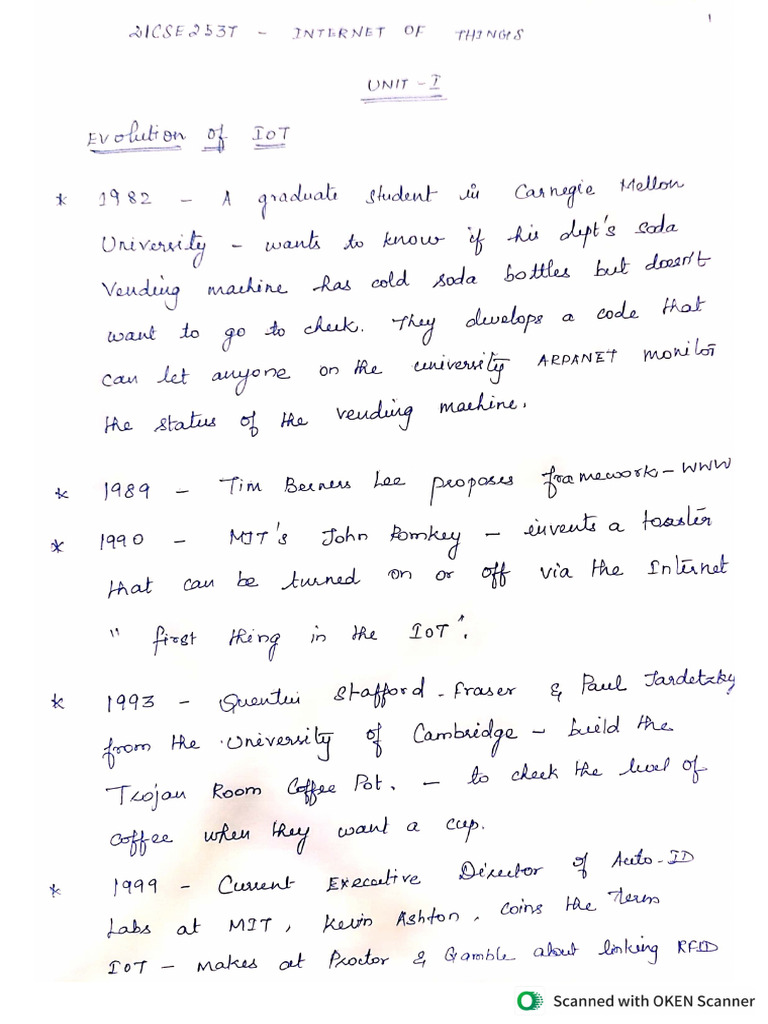 1
21CSE253T - INTERNET OF THINGS
UNIT - I
Evolution of IoT
* 1982 - A graduate student in Carnegie Mellon
University - wants to know if his dept's soda
Vending machine has cold soda bottles but doesn't
want to go to check. They develops a code that
can let anyone on the university ARPANET monitor
the status of the vending machine.
* 1989 - Tim Berners Lee proposes framework - WWW
* 1990 - MIT's John Romkey - invents a toaster
that can be turned on or off via the Internet
" first thing in the IoT".
* 1993 - Quentin Stafford-Fraser & Paul Jardetzky
from the University of Cambridge - build the
Trojan Room Coffee Pot. - to check the level of
coffee when they want a cup.
* 1999 - Current Executive Director of Auto-ID
Labs at MIT, Kevin Ashton, coins the term
IoT - makes at Proctor & Gamble about linking RFID
Scanned with OKEN Scanner